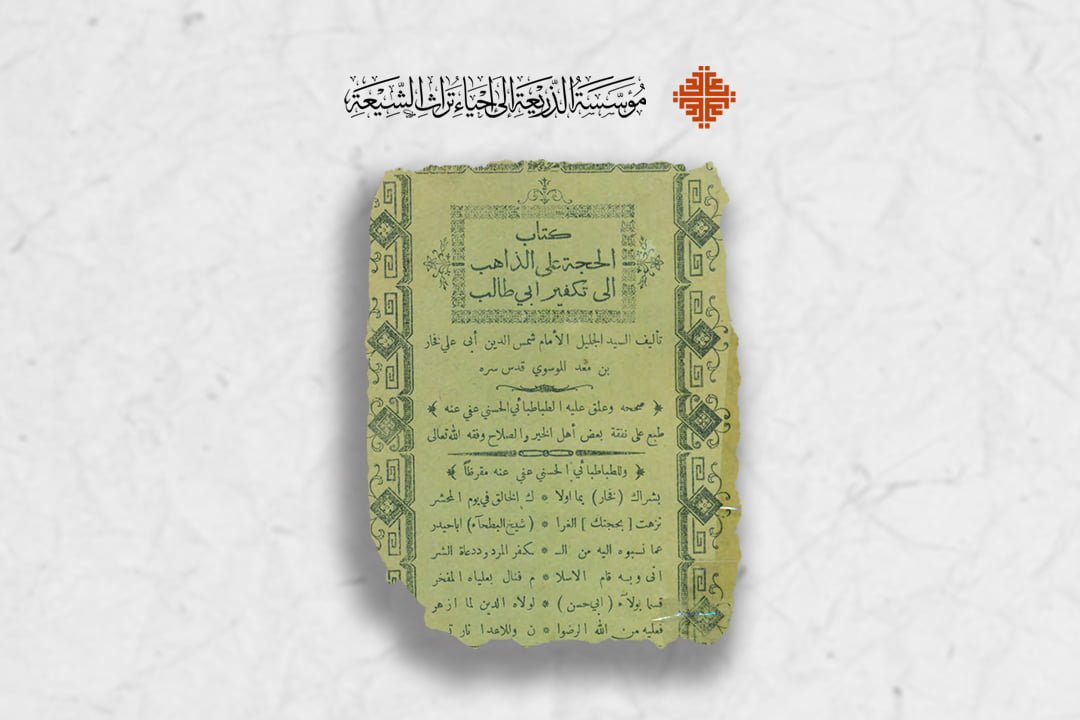 مُؤَسَّسَةُ الذَّرِيعَةِ إِلَى إِحْيَاءِ تُرَاثِ الشِّيعَةِ
كتاب
الحجة على الذاهب
الى تكفير ابي طالب
تأليف السيد الجليل الأمام شمس الدين أبى علي فخار
بن معد الموسوي قدس سره
صححه وعلق عليه الطباطبائي الحسني عفي عنه
طبع على نفقة بعض أهل الخير والصلاح وفقه الله تعالى
وللطباطبائي الحسني عفي عنه مقرظاً
بشراك (فخار) بما اولا * ك الخالق في يوم المحشر
نزهت [بحجتك] الغرا * (شيخ البطحآء) اباحيدر
عما نسبوه اليه من الـ * ـكفر المردود دعاة الشر
انى وبه قام الاسلا * م فنال بعلياه المفخر
قسما بولآء (ابي حسن) * لولاه الدين لما ازهر
فعليه من الله الرضوا * ن وللاعدا نار